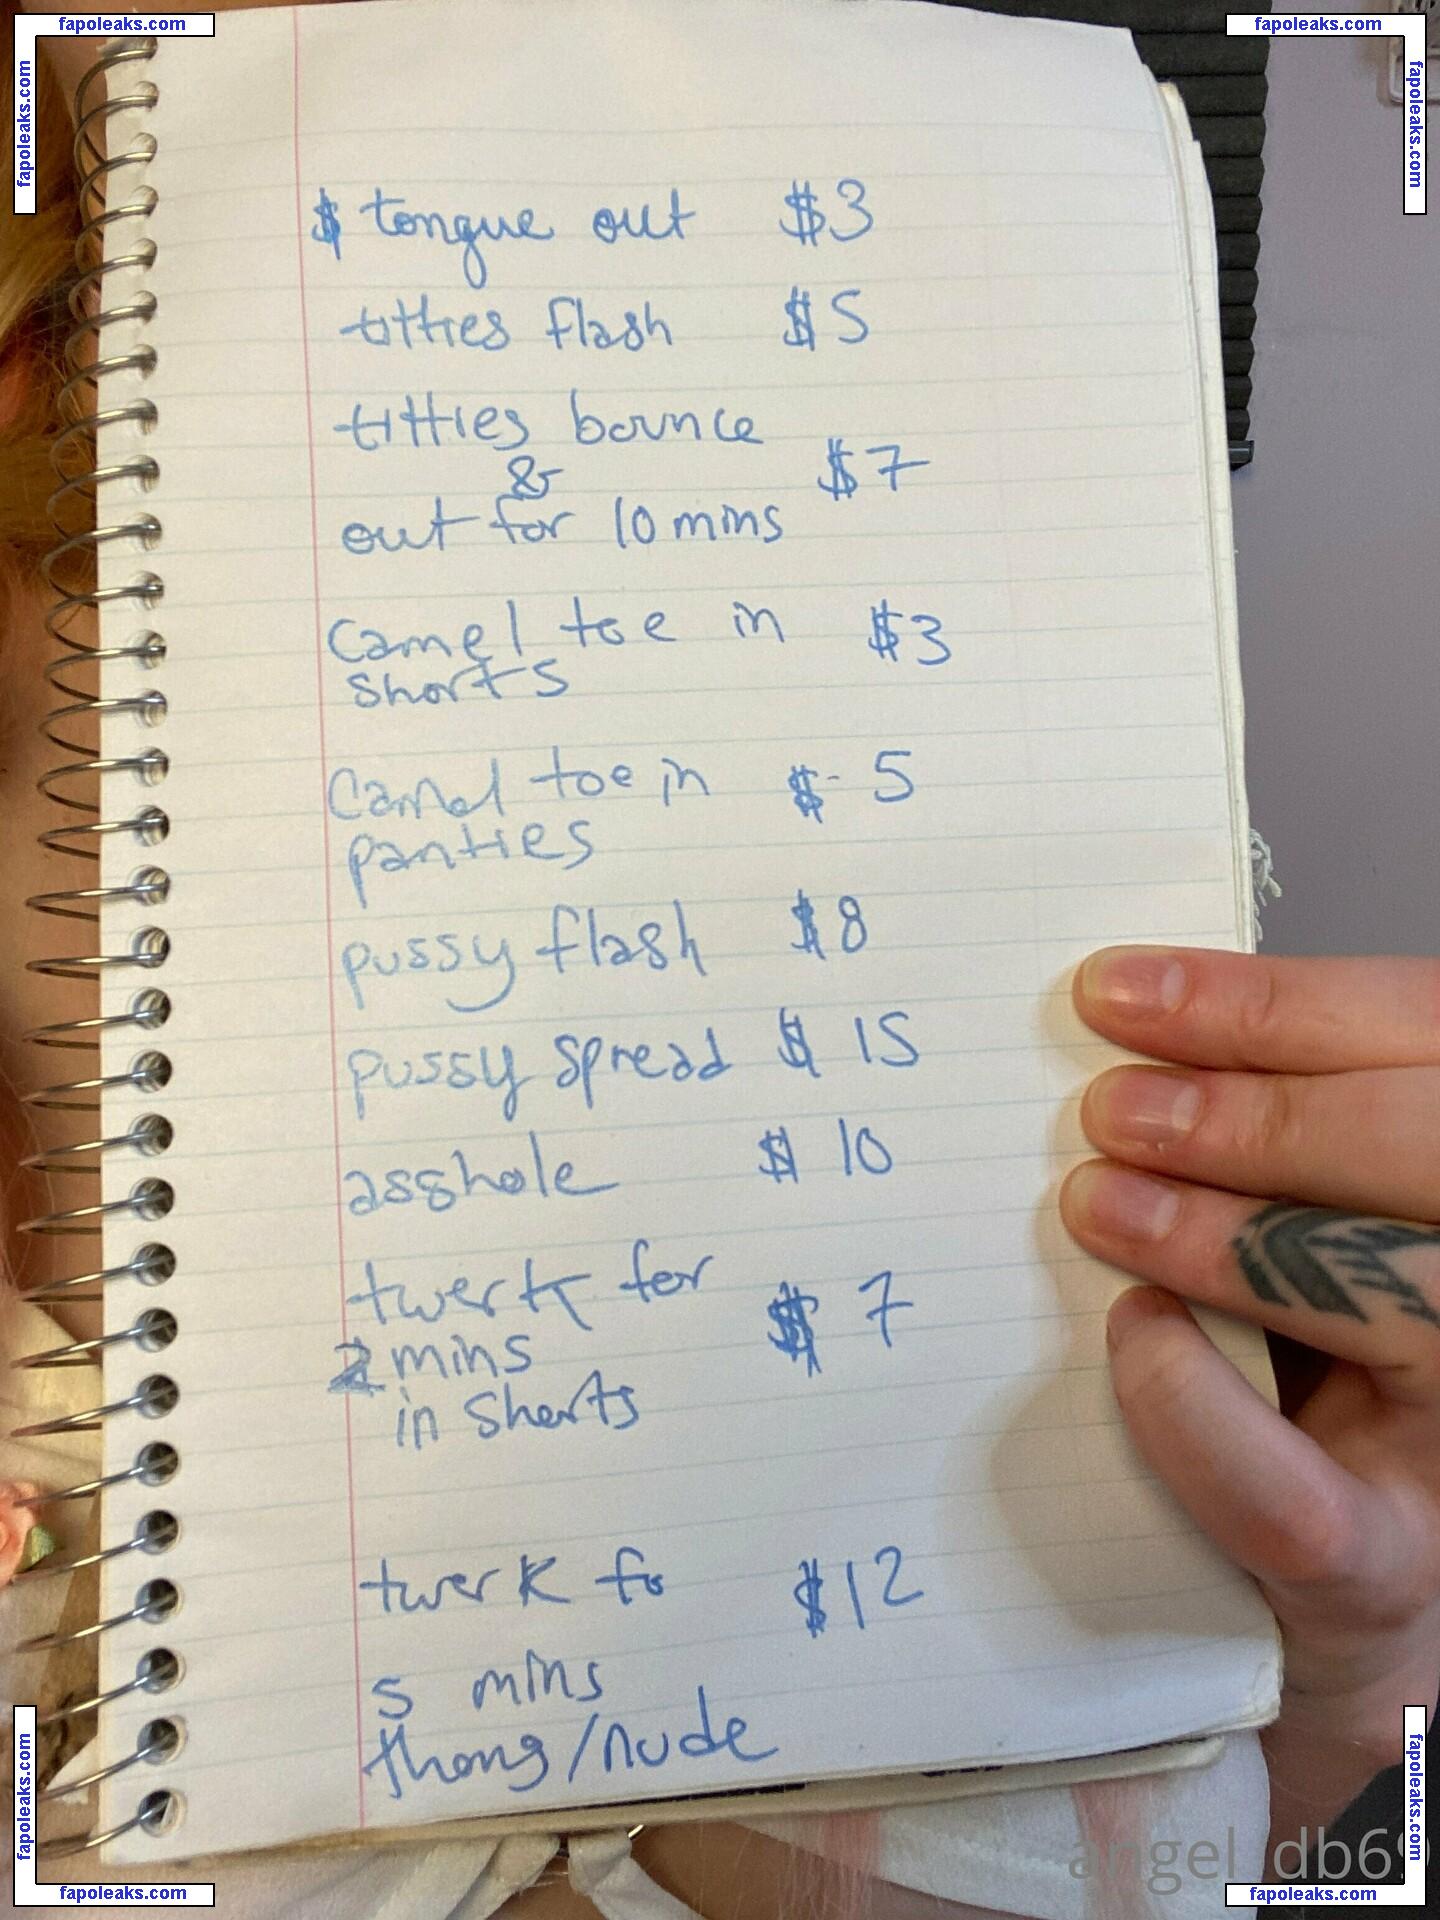 fapoleaks.com
fapoleaks.com
fapoleaks.com
fapoleaks.com
$ tongue out $3
titties flash $5
titties bounce
&
out for 10 mins $7
Camel toe in $3
shorts
Camel toe in $- 5
panties
pussy flash $8
pussy spread $ 15
asshole $ 10
twerk for
2 mins $ 7
in Shorts
twerk fo $12
5 mins
thong/nude
angel_db69
fapoleaks.com
fapoleaks.com
fapoleaks.com
fapoleaks.com